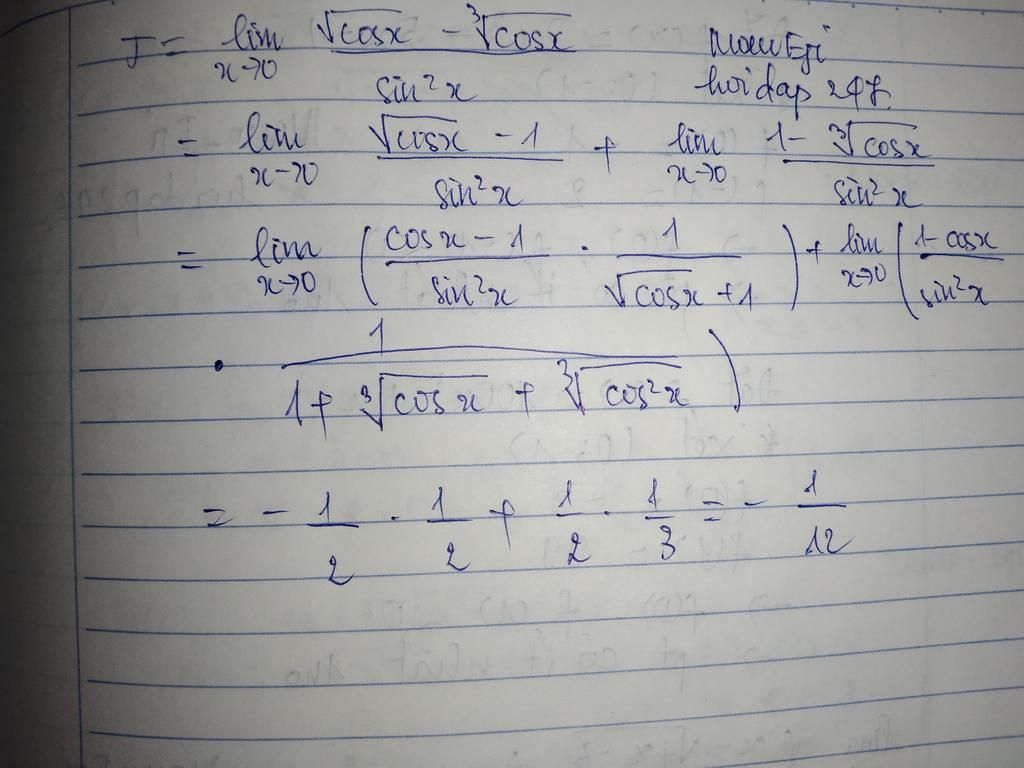 J = lim x→0 (√cosx - ∛cosx) / sin²x
hoidap247
= lim x→0 (√cosx - 1) / sin²x + lim x→0 (1 - ∛cosx) / sin²x
= lim x→0 ( (cosx - 1) / sin²x · 1 / (√cosx + 1) ) + lim x→0 ( (1 - cosx) / sin²x
· 1 / (1 + ∛cosx + ∛cos²x) )
= - 1/2 · 1/2 + 1/2 · 1/3 = - 1/12